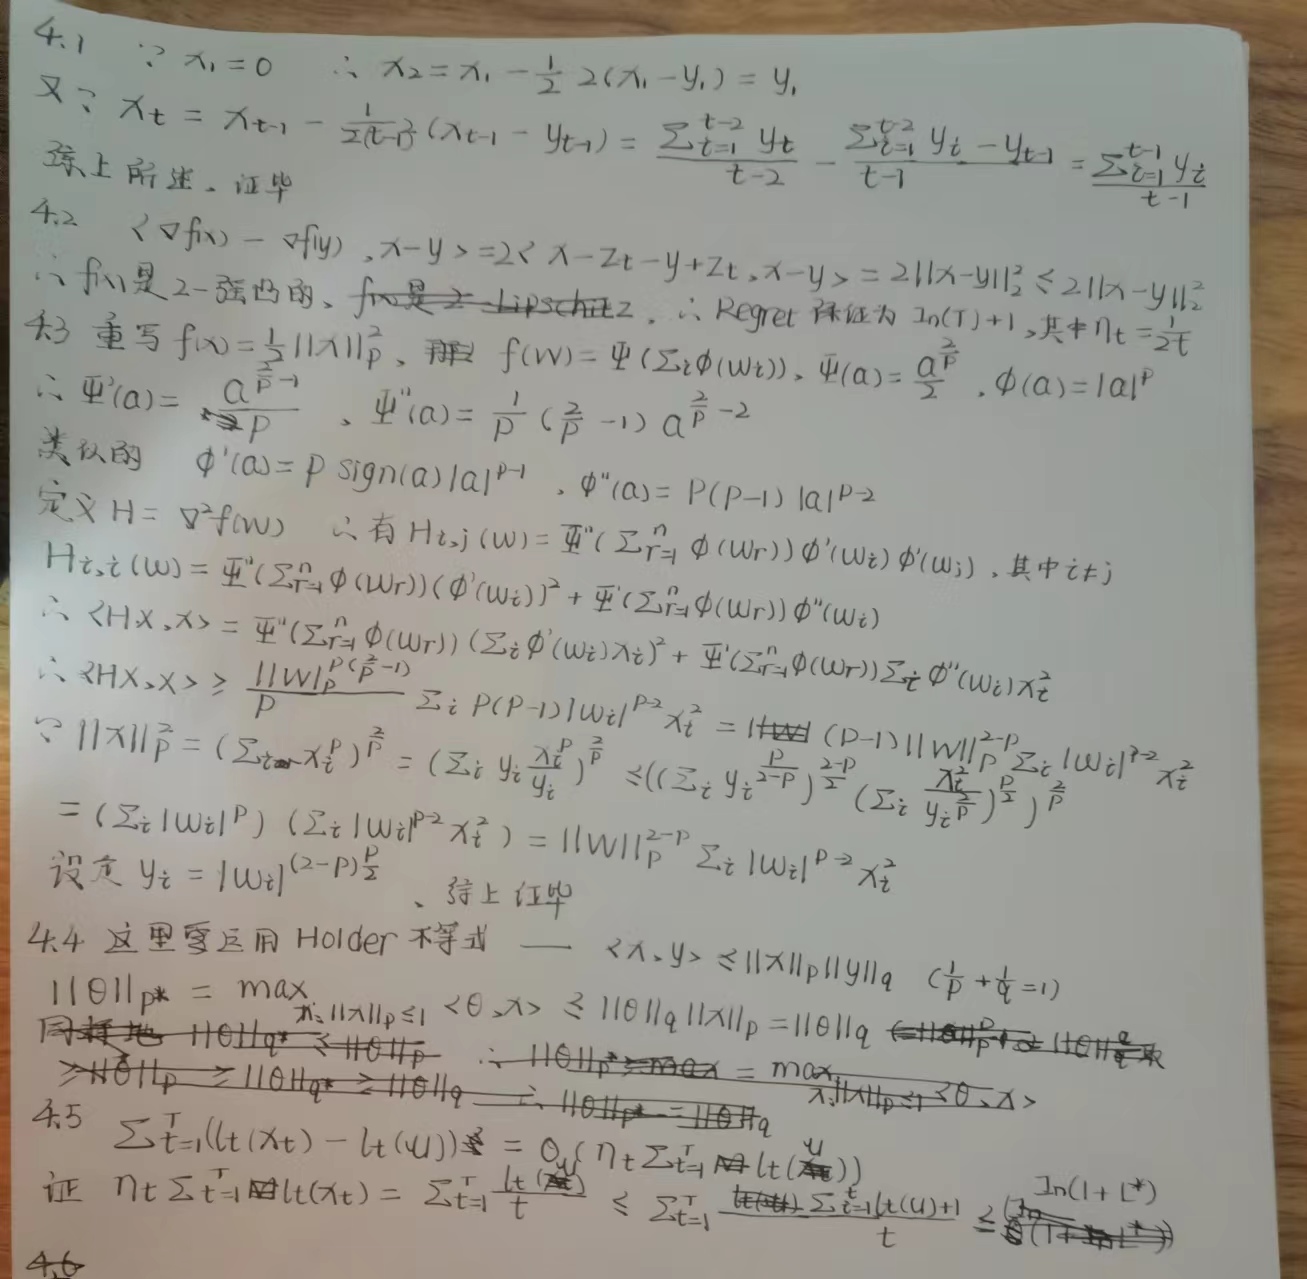 4.1 ∵ x₁=0 ∴ x₂=x₁-½ 2(x₁-y₁)=y₁
又∵ x_t = x_{t-1} - \frac{1}{2(t-1)}2(x_{t-1}-y_{t-1}) = \frac{Σ_{t=1}^{t-2} y_t}{t-2} - \frac{Σ_{i=1}^{t-2} y_i - y_{t-1}}{t-1} = \frac{Σ_{i=1}^{t-1} y_i}{t-1}
综上所述、证毕
4.2 <∇f(x)-∇f(y), x-y> = 2<x-z_t-y+z_t, x-y> = 2||x-y||₂² ≤ 2||x-y||₂²
∴ f(x)是2-强凸的、∴ Regret 保证为 ln(T)+1, 其中η_t=\frac{1}{2t}
4.3 重写 f(x)=½||x||_p²、f(w)=Ψ(Σ_iϕ(w_i)), Ψ(a)=\frac{a^{\frac{2}{p}}}{2}, ϕ(a)=|a|^p
∴ Ψ'(a)=\frac{a^{\frac{2}{p}-1}}{p}、Ψ''(a)=\frac{1}{p}(\frac{2}{p}-1)a^{\frac{2}{p}-2}
类似的 ϕ'(a)=p sign(a)|a|^{p-1}, ϕ''(a)=p(p-1)|a|^{p-2}
定义 H=∇²f(w) ∴有 H_{i,j}(w)=Ψ''(Σ_{r=1}^nϕ(w_r))ϕ'(w_i)ϕ'(w_j), 其中i≠j
H_{i,i}(w)=Ψ''(Σ_{r=1}^nϕ(w_r))(ϕ'(w_i))²+Ψ'(Σ_{r=1}^nϕ(w_r))ϕ''(w_i)
∴ <Hx,x>=Ψ''(Σ_{r=1}^nϕ(w_r))(Σ_iϕ'(w_i)x_i)²+Ψ'(Σ_{r=1}^nϕ(w_r))Σ_iϕ''(w_i)x_i²
∴ <Hx,x> ≥ \frac{||w||_p^{p(\frac{2}{p}-1)}}{p} Σ_i p(p-1)|w_i|^{p-2}x_i² = (p-1)||w||_p^{2-p}Σ_i|w_i|^{p-2}x_i²
∵ ||x||_p²=(Σ_i x_i^p)^{\frac{2}{p}}=(Σ_i y_i\frac{x_i^p}{y_i})^{\frac{2}{p}} ≤((Σ_i y_i^{\frac{p}{2-p}})^{\frac{2-p}{2}}(Σ_i\frac{x_i^2}{y_i^{\frac{2}{p}}})^{\frac{p}{2}})^{\frac{2}{p}}
=(Σ_i|w_i|^p)(Σ_i|w_i|^{p-2}x_i²)=||w||_p^{2-p}Σ_i|w_i|^{p-2}x_i²
设定 y_i=|w_i|^{(2-p)\frac{p}{2}}、综上证毕
4.4 这里要运用 Holder 不等式 — <x,y> ≤||x||_p||y||_q (\frac{1}{p}+\frac{1}{q}=1)
||θ||_{p*} = max_{x:||x||_p≤1} <θ,x> ≤ ||θ||_q||x||_p=||θ||_q
4.5 Σ_{t=1}^T(l_t(x_t)-l_t(u)) = O(η_tΣ_{t=1}^T l_t(u))
证 η_tΣ_{t=1}^T l_t(x_t) = Σ_{t=1}^T \frac{l_t(u)}{t} ≤ Σ_{t=1}^T \frac{Σ_{i=1}^t l_t(u)+1}{t} ≤ ln(1+L*)